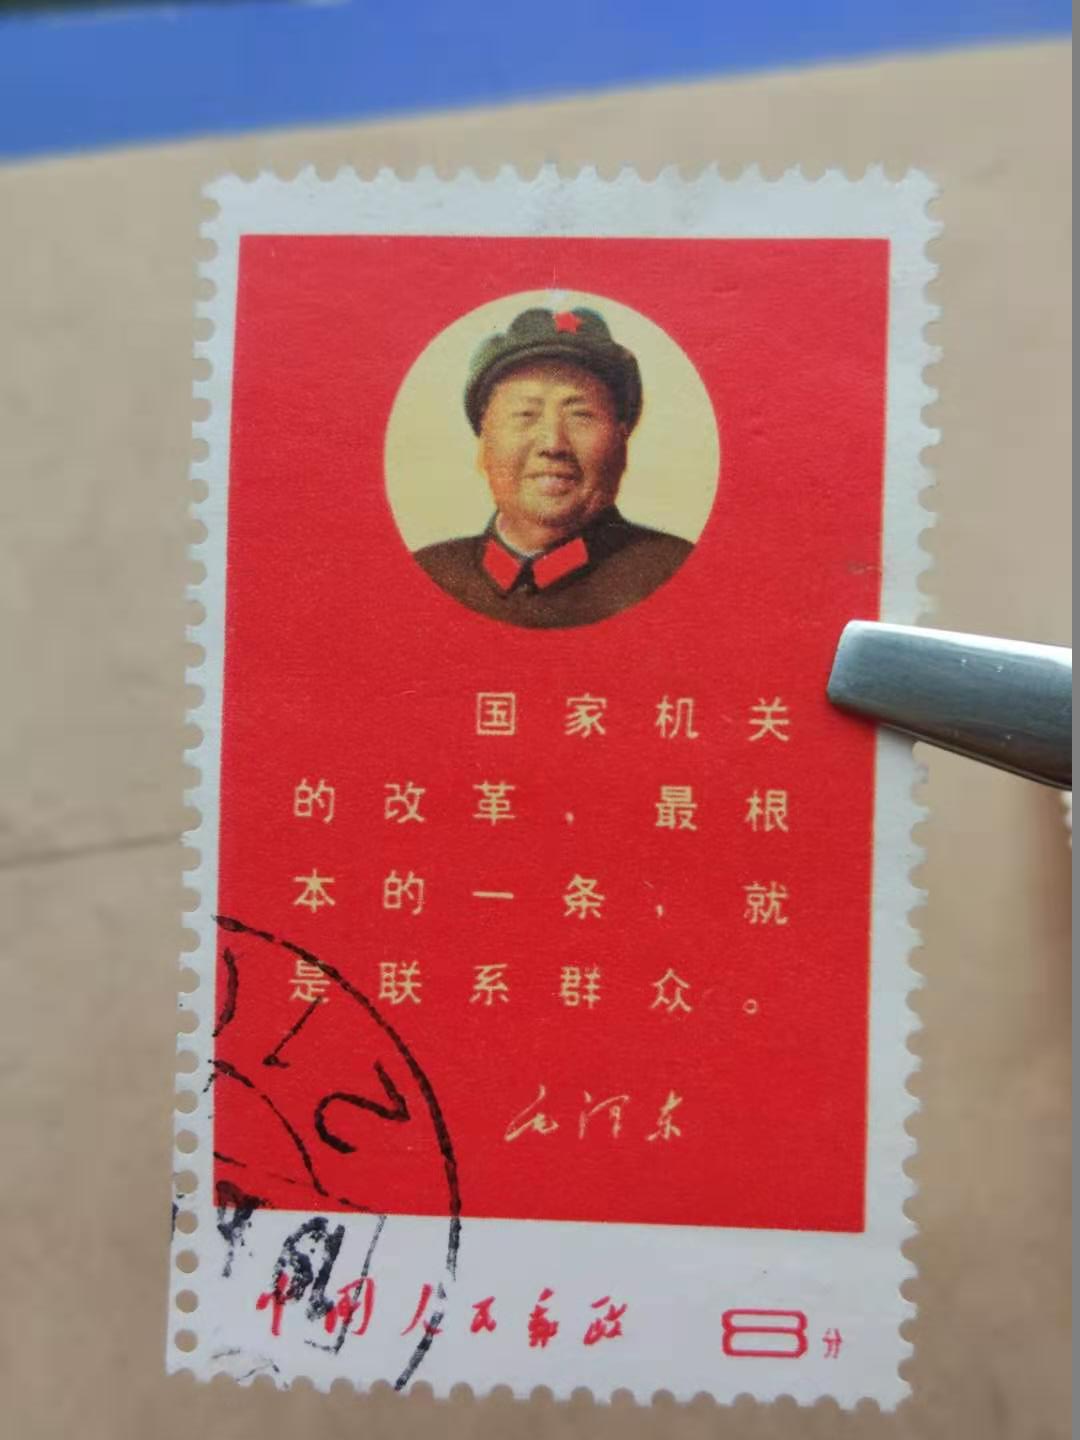 国家机关
的改革，最根
本的一条，就
是联系群众。
毛泽东
中国人民邮政 8分